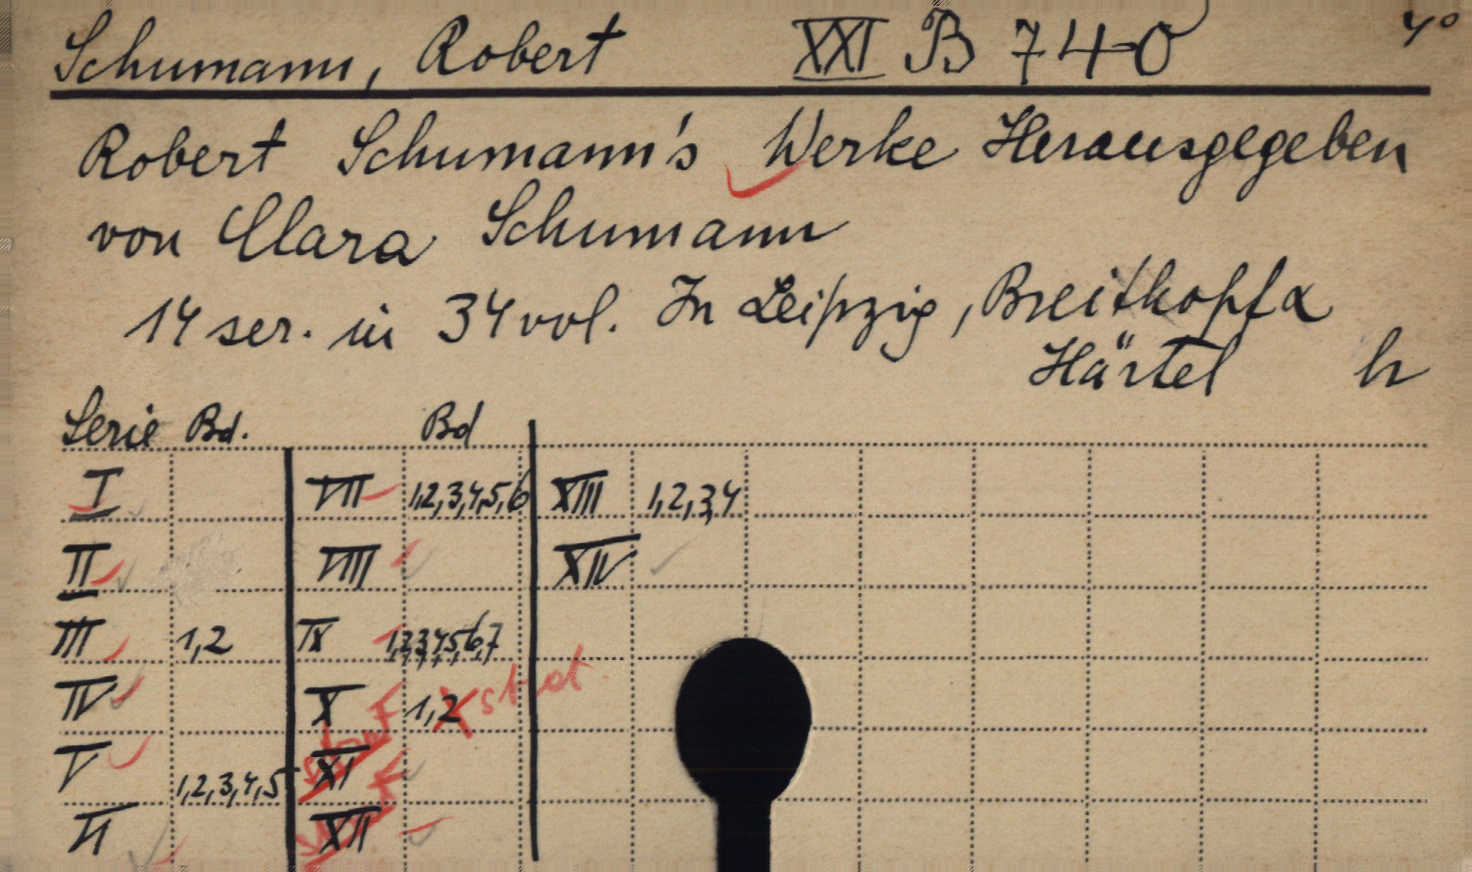 Schumann, Robert XXI B 740 4°
Robert Schumann's Werke Herausgegeben
von Clara Schumann
14 ser. in 34 vol. In Leipzig, Breitkopf &
Härtel h
Serie Bd. Bd
I VII 1,2,3,4,5,6 XIII 1,2,3,4
II VIII XIV
III 1,2 IX 1,2,3,4,5,6,7
IV X 1,2 st et
V 1,2,3,4,5 XI
VI XII